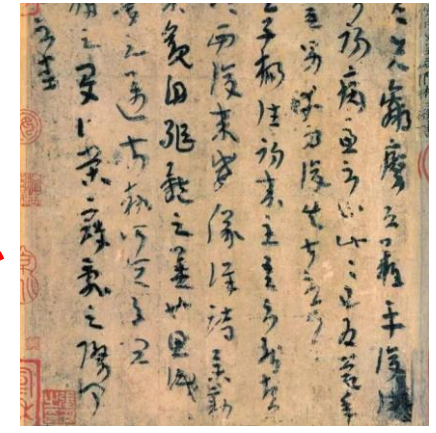 先羸瘵恐難平復往屬
初病慮不止此此已為慶承
唯男幸為復失前憂耳
子楊往初來主吾不能盡
臨西復來威儀詳跱舉動
成觀自軀體之美也思識
量之邁前執所恆有宜
稱之夏伯榮寇亂之際聞
問不悉